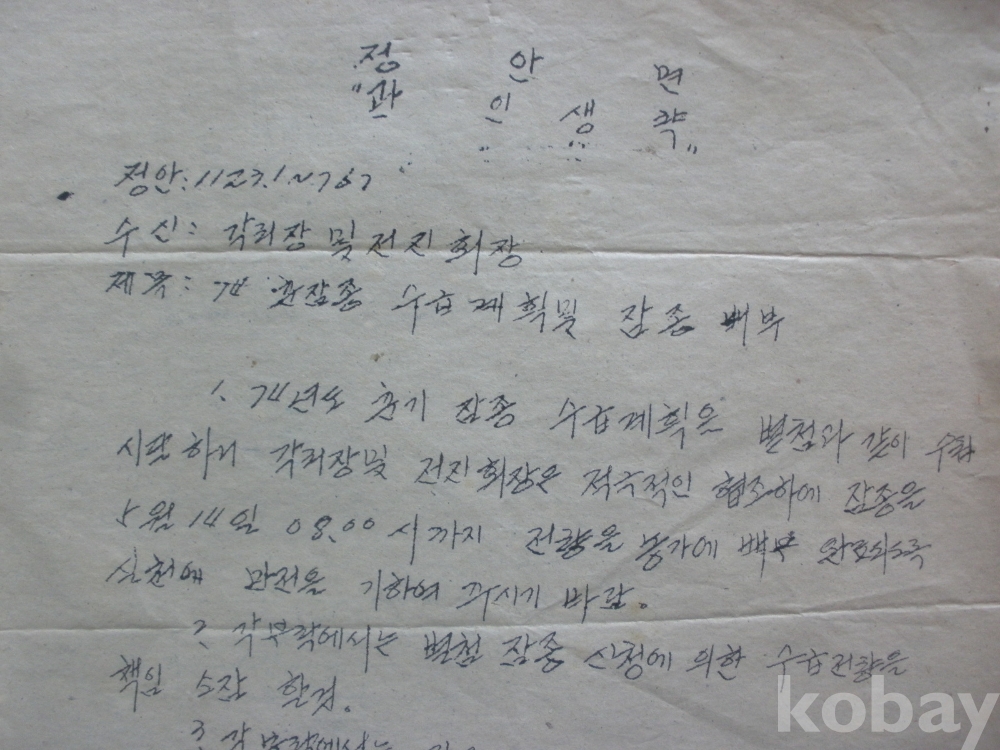 정 안 면
"관 인 생 략"
정안: 1123.1~767
수신: 각리장 및 전진회장
제목: 74 춘잠종 수급계획및 잠종 배부
1. 74년도 춘기 잠종 수급계획은 별첨과 같이
시달하니 각리장및 전진회장은 적극적인 협조하에 잠종을
5월 14일 08.00 시까지 전량을 농가에 배부 완료되도록
실천에 만전을 기하여 주시기 바람.
2. 각부락에서는 별첨 잠종 신청에 의한 수급전량을
책임 소잠 할것.
3. 각 부락에서는
kobay